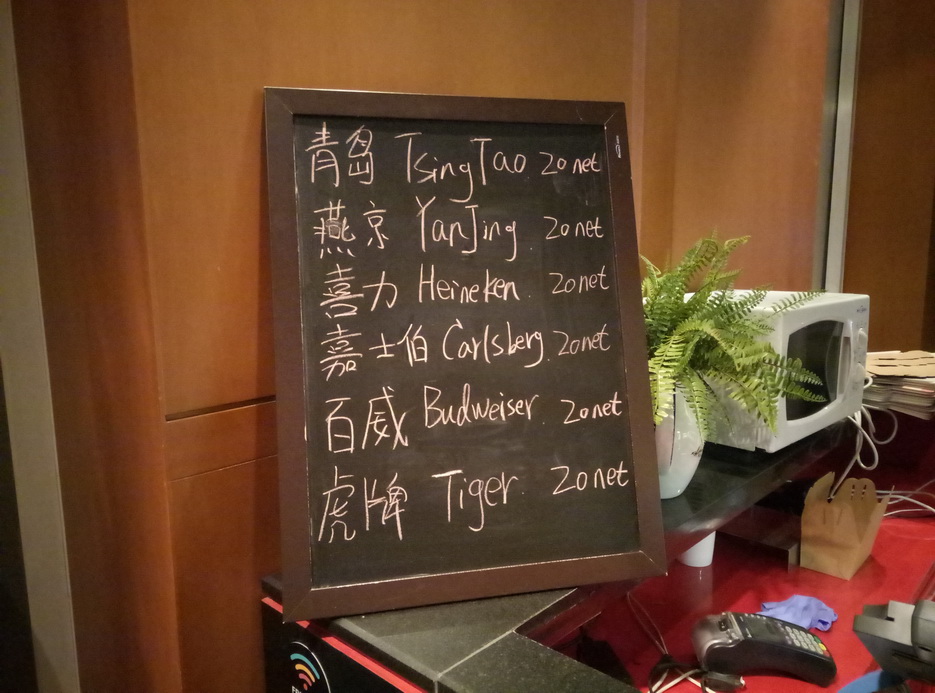 青岛 TsingTao 20 net
燕京 YanJing 20 net
喜力 Heineken 20 net
嘉士伯 Carlsberg 20 net
百威 Budweiser 20 net
虎牌 Tiger 20 net